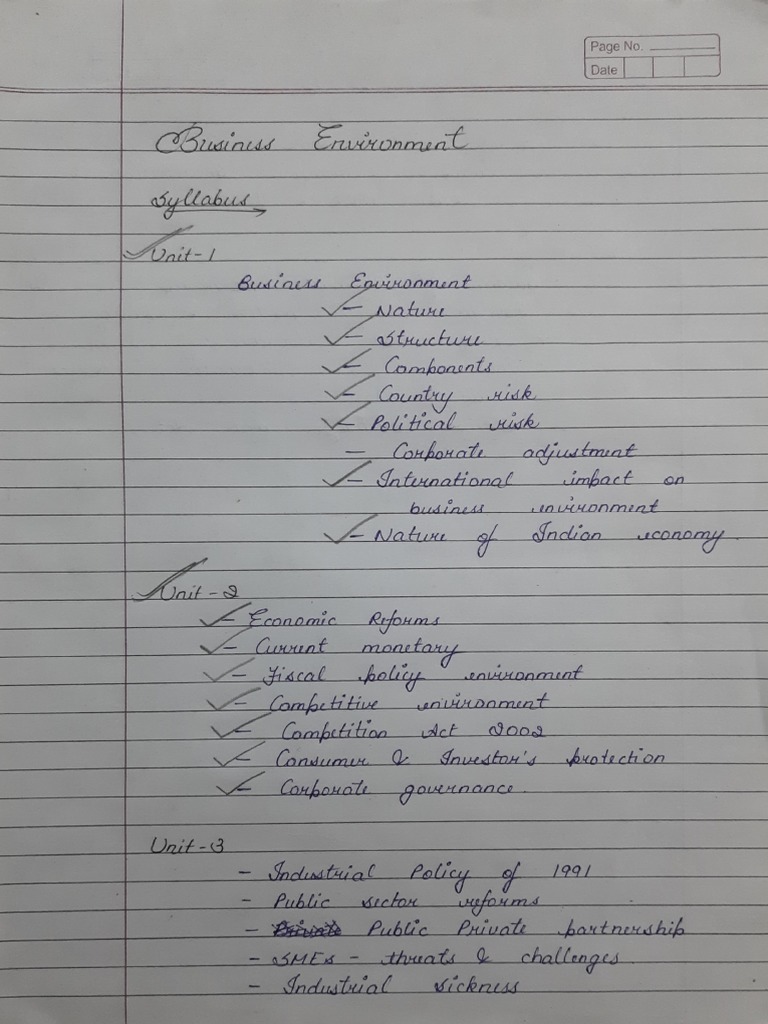 Page No.
Date
Business Environment
Syllabus
Unit-1
Business Environment
- Nature
- Structure
- Components
- Country risk
- Political risk
- Corporate adjustment
- International impact on
business environment
- Nature of Indian economy.
Unit-2
- Economic Reforms
- Current monetary
- Fiscal policy environment
- Competitive environment
- Competition Act 2002
- Consumer & Investor's protection
- Corporate governance.
Unit-3
- Industrial Policy of 1991
- Public sector reforms
- Public Private partnership
- SMEs - threats & challenges.
- Industrial sickness